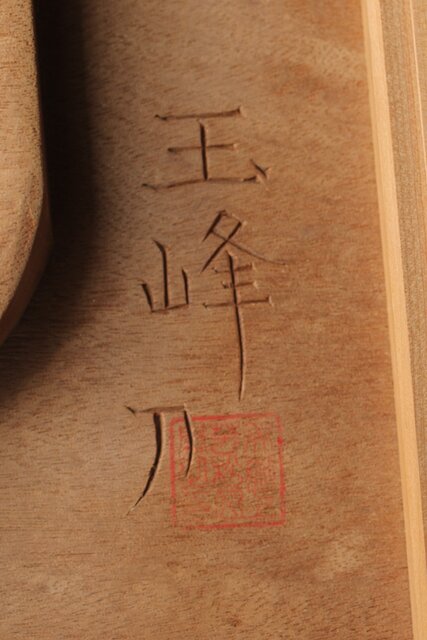 玉峰刀